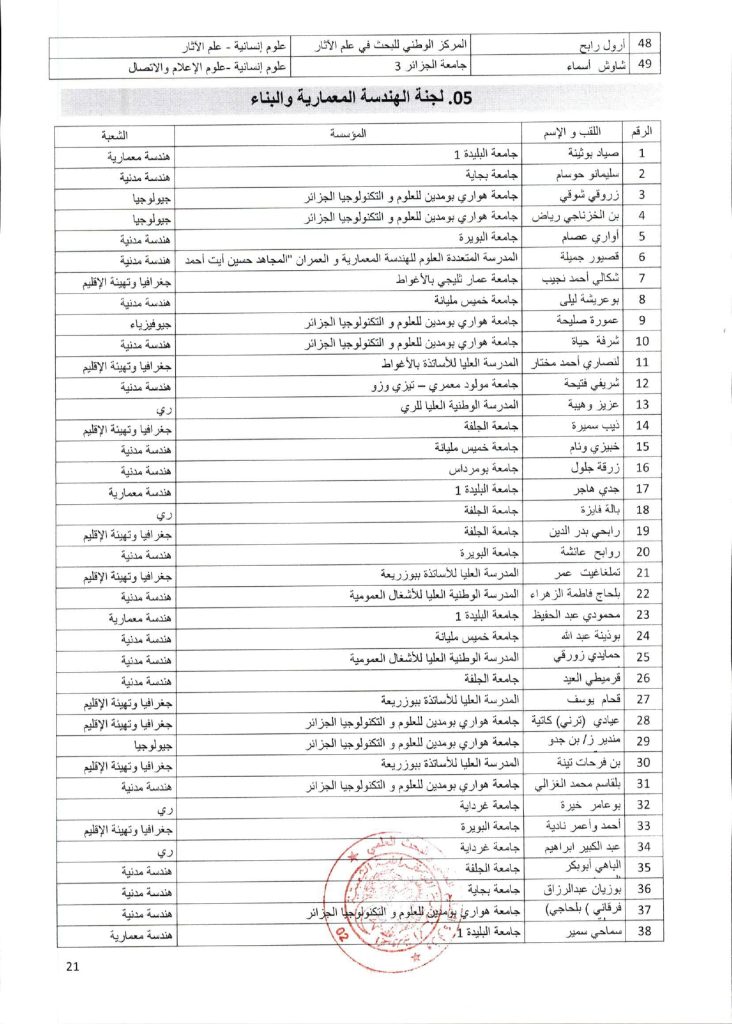 48 أرول رابح المركز الوطني للبحث في علم الآثار علوم إنسانية - علم الآثار
49 شاوش أسماء جامعة الجزائر 3 علوم إنسانية -علوم الإعلام والاتصال
05. لجنة الهندسة المعمارية والبناء
الرقم اللقب و الإسم المؤسسة الشعبة
1 صياد بوثينة جامعة البليدة 1 هندسة معمارية
2 سليمانو حوسام جامعة بجاية هندسة مدنية
3 زروقي شوقي جامعة هواري بومدين للعلوم و التكنولوجيا الجزائر جيولوجيا
4 بن الخزناجي رياض جامعة هواري بومدين للعلوم و التكنولوجيا الجزائر جيولوجيا
5 أواري عصام جامعة البويرة هندسة مدنية
6 قصيور جميلة المدرسة المتعددة العلوم للهندسة المعمارية و العمران "المجاهد حسين أيت أحمد هندسة مدنية
7 شكالي أحمد نجيب جامعة عمار ثليجي بالأغواط جغرافيا وتهيئة الإقليم
8 بوعريشة ليلى جامعة خميس مليانة هندسة مدنية
9 عمورة صليحة جامعة هواري بومدين للعلوم و التكنولوجيا الجزائر جيوفيزياء
10 شرفة حياة جامعة هواري بومدين للعلوم و التكنولوجيا الجزائر هندسة مدنية
11 لنصاري أحمد مختار المدرسة العليا للأساتذة بالأغواط جغرافيا وتهيئة الإقليم
12 شريفي فتيحة جامعة مولود معمري – تيزي وزو هندسة مدنية
13 عزيز وهيبة المدرسة الوطنية العليا للري ري
14 ذيب سميرة جامعة الجلفة جغرافيا وتهيئة الإقليم
15 خبيزي وئام جامعة خميس مليانة هندسة مدنية
16 زرقة جلول جامعة بومرداس هندسة مدنية
17 جدي هاجر جامعة البليدة 1 هندسة معمارية
18 بالة فايزة جامعة الجلفة ري
19 رابحي بدر الدين جامعة الجلفة جغرافيا وتهيئة الإقليم
20 روابح عائشة جامعة البويرة هندسة مدنية
21 تملغاغيت عمر المدرسة العليا للأساتذة ببوزريعة جغرافيا وتهيئة الإقليم
22 بلحاج فاطمة الزهراء المدرسة الوطنية العليا للأشغال العمومية هندسة مدنية
23 محمودي عبد الحفيظ جامعة البليدة 1 هندسة معمارية
24 بوذينة عبد الله جامعة خميس مليانة هندسة مدنية
25 حمايدي زورقي المدرسة الوطنية العليا للأشغال العمومية هندسة مدنية
26 قرميطي العيد جامعة الجلفة هندسة مدنية
27 قحام يوسف المدرسة العليا للأساتذة ببوزريعة جغرافيا وتهيئة الإقليم
28 عيادي (ترني) كاتية جامعة هواري بومدين للعلوم و التكنولوجيا الجزائر جغرافيا وتهيئة الإقليم
29 مندير ز/ بن جدو جامعة هواري بومدين للعلوم و التكنولوجيا الجزائر جيولوجيا
30 بن فرحات تينة المدرسة العليا للأساتذة ببوزريعة جغرافيا وتهيئة الإقليم
31 بلقاسم محمد الغزالي جامعة هواري بومدين للعلوم و التكنولوجيا الجزائر هندسة مدنية
32 بوعامر خيرة جامعة غرداية ري
33 أحمد وأعمر نادية جامعة البويرة جغرافيا وتهيئة الإقليم
34 عبد الكبير ابراهيم جامعة غرداية ري
35 الباهي أبوبكر جامعة الجلفة هندسة مدنية
36 بوزيان عبدالرزاق جامعة بجاية هندسة مدنية
37 فرقاني ( بلحاجي) جامعة هواري بومدين للعلوم و التكنولوجيا الجزائر هندسة مدنية
38 سماحي سمير جامعة البليدة 1 هندسة معمارية
02
21